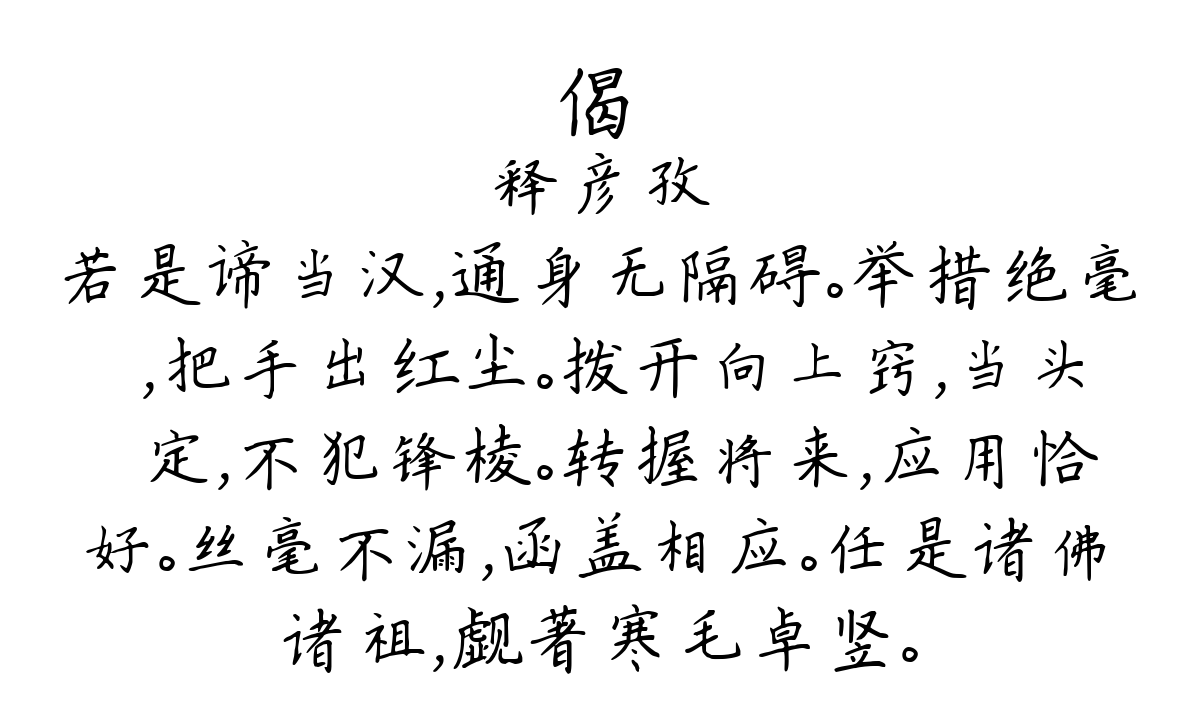 偈
释彦孜
若是谛当汉,通身无隔碍。举措绝毫
,把手出红尘。拨开向上窍,当头
定,不犯锋棱。转握将来,应用恰
好。丝毫不漏,函盖相应。任是诸佛
诸祖,觑著寒毛卓竖。